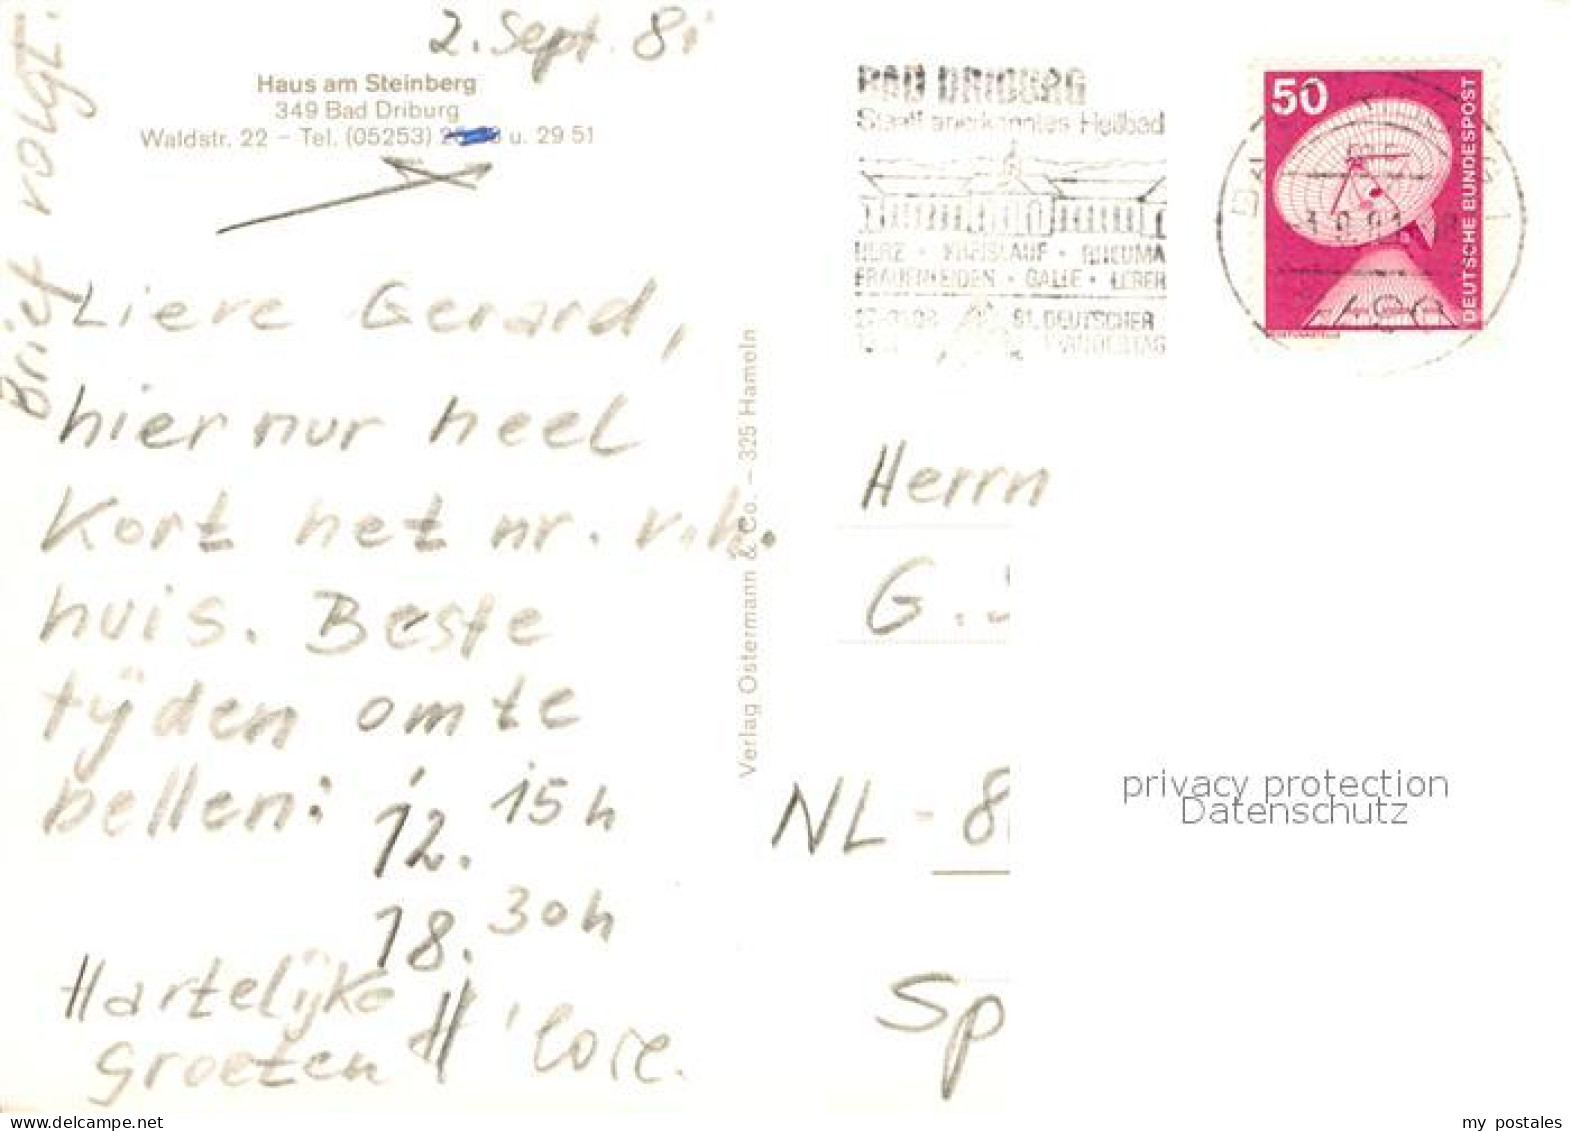 2. Sept. 81
Haus am Steinberg
349 Bad Driburg
Waldstr. 22 – Tel. (05253) u. 29 51
Brief volgt.
Lieve Gerard,
hier nur heel
Kort het nr. v.h.
huis. Beste
tÿden om te
bellen:
12. 15h
18. 30h
Hartelijke
groeten
Verlag Ostermann & Co. – 325 Hameln
BAD DRIBURG
Staatl anerkanntes Heilbad
HERZ · KREISLAUF · RHEUMA
FRAUENLEIDEN · GALLE · LEBER
81. DEUTSCHER
WANDERTAG
50
DEUTSCHE BUNDESPOST
Herrn
G.
NL - 8
Sp
privacy protection
Datenschutz
my postales